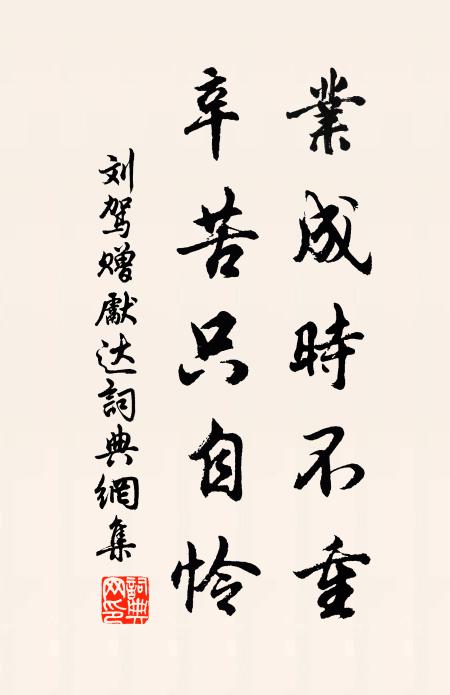 業成時不重
辛苦只自怜
刘駕贈獻达詞典網集
詞典网印